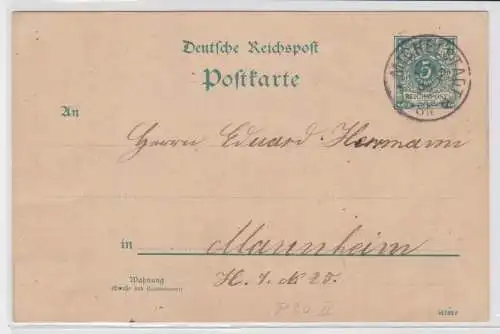 Deutsche Reichspost
Postkarte
MICHELSTADT
5
REICHSPOST
An
Herrn Eduard Herrmann
in Mannheim
Wohnung
(Straße und Hausnummer)
H. 7. No 20.
P 20 II